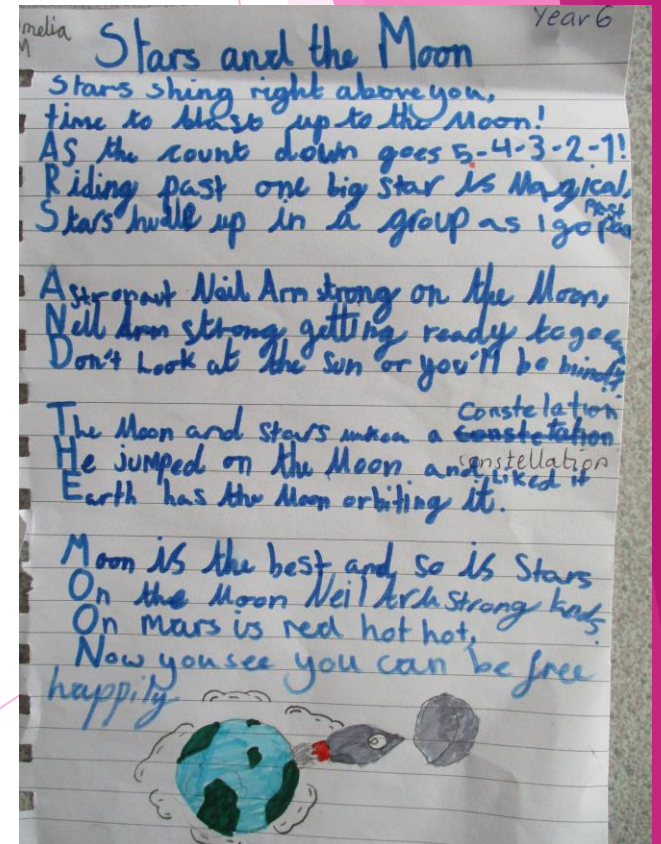 melia
M
Year 6
Stars and the Moon
Stars shing right above you,
time to blast up to the Moon!
AS the count down goes 5-4-3-2-1!
Riding past one big star is Magical,
Stars hudle up in a group as I go past

Astronaut Neil Arm strong on the Moon,
Neil Arm strong getting ready to go
Don't Look at the Sun or you'll be blind!

Constelation
The Moon and stars a Constetation
constellation
He jumped on the Moon and Liked it
Earth has the Moon orbiting it.

Moon is the best and so is Stars
On the Moon Neil Arm Strong lands.
On mars is red hot hot,
Now you see you can be free
happily